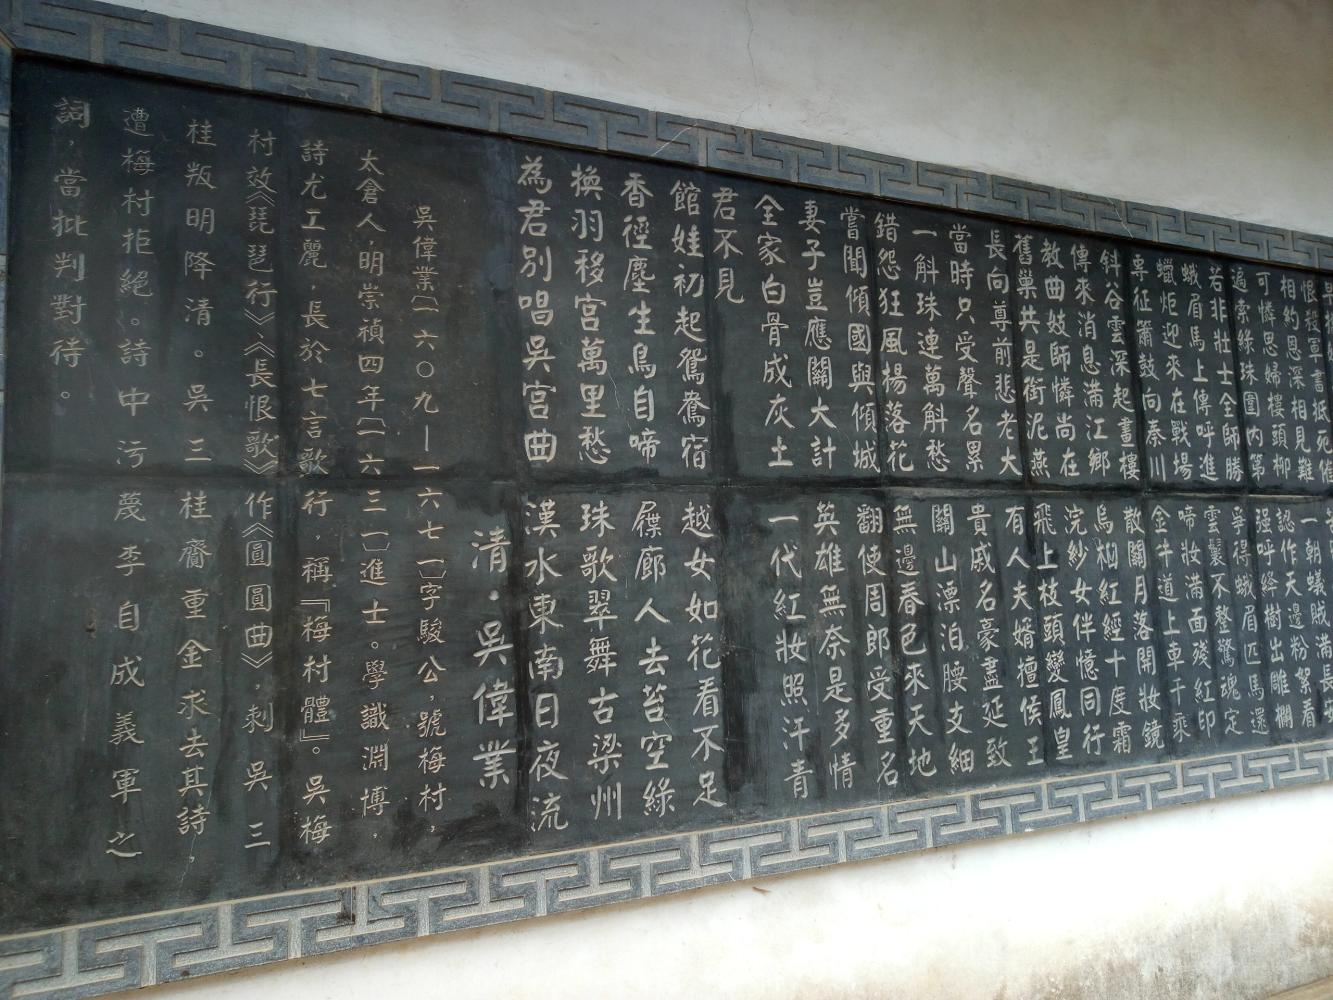 恨殺軍書抵死催
相約恩深相見難 一朝蟻賊滿長安
可憐思婦樓頭柳 認作天邊粉絮看
遍索綠珠圍內第 强呼絳樹出雕欄
若非壯士全師勝 爭得蛾眉匹馬還
蛾眉馬上傳呼進 雲鬟不整驚魂定
蠟炬迎來在戰場 啼妝滿面殘紅印
專征簫鼓向秦川 金牛道上車千乘
斜谷雲深起畫樓 散關月落開妝鏡
傳來消息滿江鄉 烏桕紅經十度霜
教曲妓師憐尚在 浣紗女伴憶同行
舊巢共是銜泥燕 飛上枝頭變鳳皇
長向尊前悲老大 有人夫婿擅侯王
當時只受聲名累 貴戚名豪盡延致
一斛珠連萬斛愁 關山漂泊腰支細
錯怨狂風楊落花 無邊春色來天地
嘗聞傾國與傾城 翻使周郎受重名
妻子豈應關大計 英雄無奈是多情
全家白骨成灰土 一代紅妝照汗青
君不見
館娃初起鴛鴦宿 越女如花看不足
香徑塵生鳥自啼 屧廊人去苔空綠
換羽移宮萬里愁 珠歌翠舞古梁州
為君別唱吳宮曲 漢水東南日夜流
清·吳偉業
吳偉業〔一六〇九—一六七一〕字駿公，號梅村，
太倉人，明崇禎四年〔一六三一〕進士。學識淵博，
詩尤工麗，長於七言歌行，稱『梅村體』。吳梅
村效《琵琶行》《長恨歌》作《圓圓曲》，刺吳三
桂叛明降清。吳三桂齎重金求去其詩，
遭梅村拒絕。詩中污蔑李自成義軍之
詞，當批判對待。